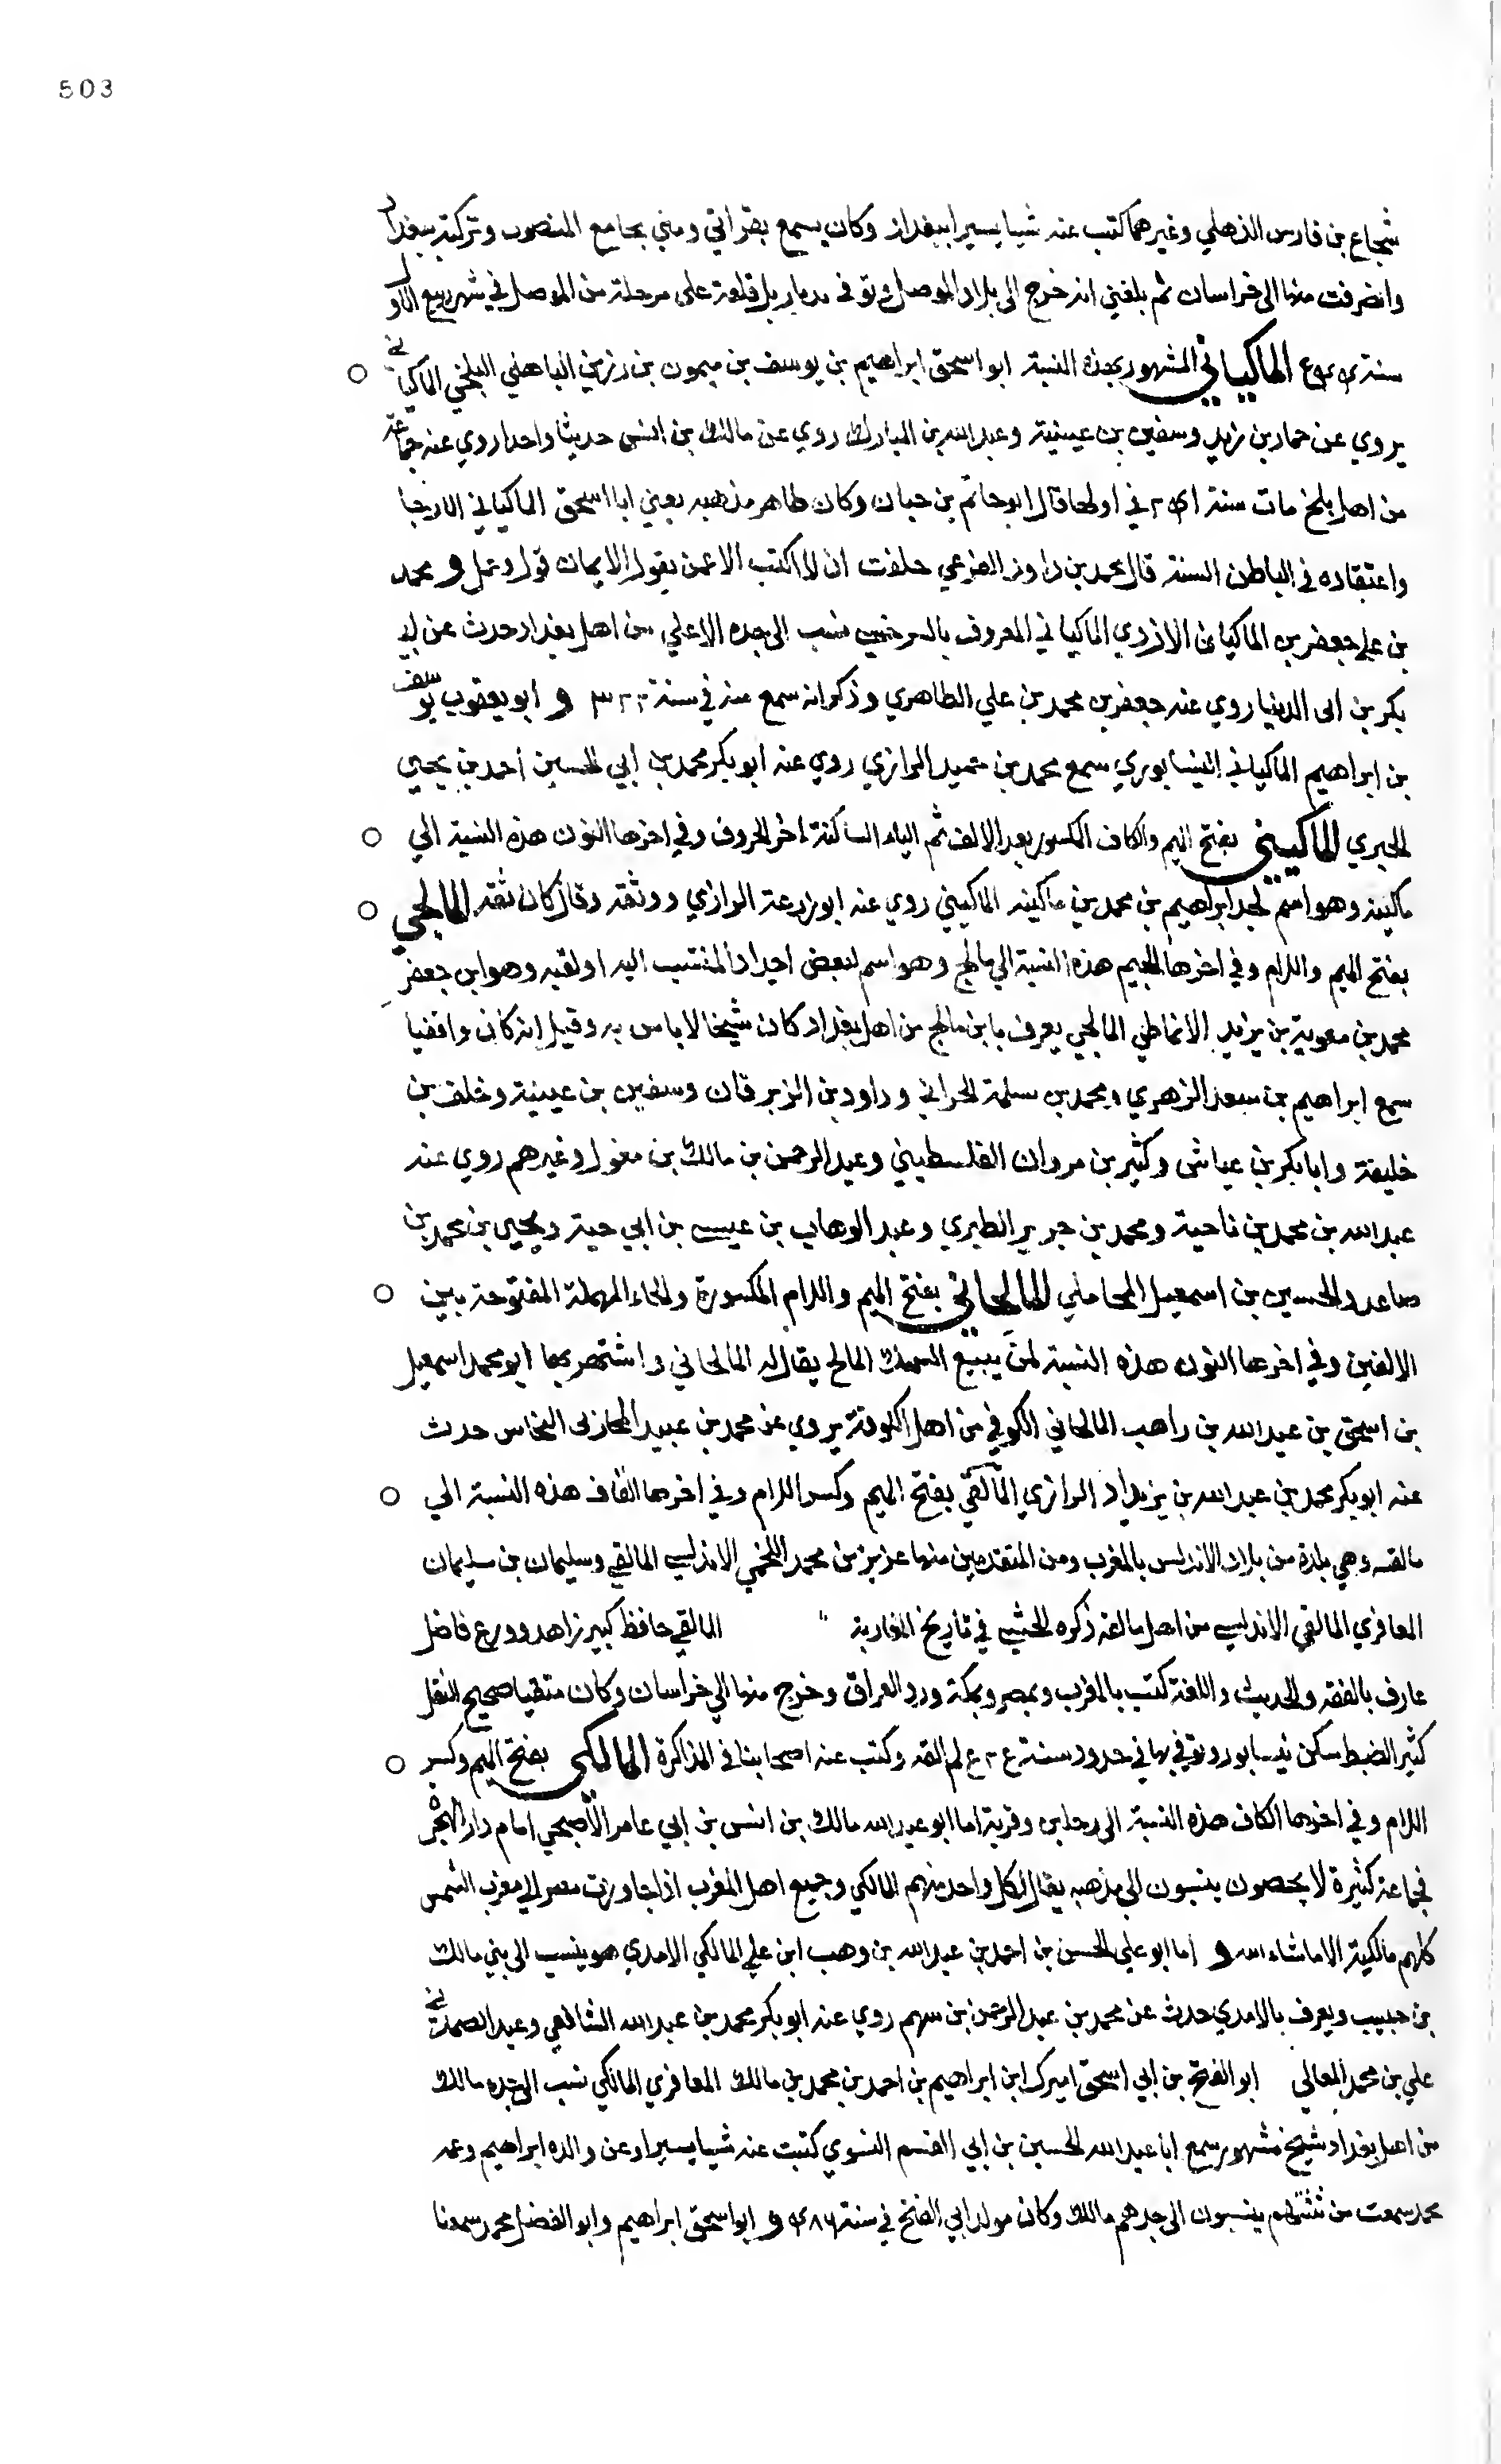 503
شجاع بن فارس الذهلي وغيرهما كتبت عنه شيئا يسيرا ببغداذ وكان يسمع بقراتي ومني بجامع المنصور وتركته ببغداد
وانصرفت منها الى خراسان ثم بلغني انه خرج الى بلاد الموصل وتوفي على مرحلة من الموصل في شهر ربيع الاول
سنة الماكياني المشهور بهذه النسبة ابو اسحق ابراهيم بن يوسف بن ميمون بن رزين الباهلي البلخي الماكياني
يروي عن حماد بن زيد وسفين بن عيينة وعبد الله بن المبارك روي عن مالك بن انس حديثا واحدا روي عنه جماعة
من اهل بلخ مات سنة في اولها قال ابو حاتم بن حبان وكان ظاهر مذهبه يعني ابا اسحق الماكياني الارجا
واعتقاده في الباطن السنة قال محمد بن داوذ الفزعي حلفت ان لا اكتب الا عمن يقول الايمان قول وعمل و محمد
بن علي جعفر بن الماكيان الازدي الماكياني المعروف بالسرخسي نسب الى جده الاعلي من اهل بغداد حدث عن ابي
بكر بن ابى الدنيا روي عنه جعفر بن محمد بن علي الطاهري وذكر انه سمع منه في سنة ٣٢٢ و ابو يعقوب يوسف
بن ابراهيم الماكياني النيسابوري سمع محمد بن حميد الرازي روي عنه ابو بكر محمد بن ابي الحسين احمد بن يحيي
الحيري الماكيني بفتح الميم والكاف المكسور بعد الالف ثم الياء الساكنة اخر الحروف وفي اخرها النون هذه النسبة الي
ماكينه وهو اسم لجد ابراهيم بن محمد بن ماكينه الماكيني روي عنه ابو زرعة الرازي ووثقه وقال كان ثقه المالجي
بفتح الميم واللام وفي اخرها الجيم هذه النسبة الي مالج وهو اسم لبعض اجداد المنتسب اليه او لقبه وهو ابن جعفر
محمد بن معوية بن يزيد الانماطي المالجي يعرف بابن مالج من اهل بغداد كان شيخا لا باس به وقيل انه كان واقفيا
سمع ابراهيم بن سعد الزهري ومحمد بن سلمة الحراني وداود بن الزبرقان وسفين بن عيينة وخلف بن
خليفة وابا بكر بن عياش وكثير بن مروان الفلسطيني وعبد الرحمن بن مالك بن مغول وغيرهم روي عنه
عبد الله بن محمد بن ناجية ومحمد بن جرير الطبري وعبد الوهاب بن عيسى بن ابي حية ويحيي بن محمد بن
صاعد والحسين بن اسمعيل المحاملي المالحاني بفتح الميم واللام المكسورة والحاء المهملة المفتوحة بين
الالفين وفي اخرها النون هذه النسبة لمن يبيع السمك المالح يقال له المالحاني واشتهر بها ابو محمد اسمعيل
بن اسحق بن عبد الله بن راهب المالحاني الكوفي من اهل الكوفة يروي عن محمد بن عبيد المحازلى النخاس حدث
عنه ابو بكر محمد بن عبد الله بن يزداد الرازي المالقي بفتح الميم وكسر اللام وفي اخرها القاف هذه النسبة الي
مالقه وهي بلدة من بلاد الاندلس بالمغرب ومن المتقدمين منها عزيز بن محمد اللخمي الاندلسي المالقي وسليمان بن سليمان
المعافري المالقي الاندلسي من اهل مالقه ذكره الخشني في تأريخ المغاربة المالقي حافظ كبير زاهد وورع فاضل
عارف بالفقه والحديث واللغة كتب بالمغرب وبمصر وبمكة ورد العراق وخرج منها الي خراسان وكان متقيا صحيح النقل
كثير الضبط سكن نيسابور وتوفي بها في حدود سنة وكتب عنه اصحابنا في المذاكرة المالكي بفتح الميم وكسر
اللام وفي اخرها الكاف هذه النسبة الى رجلين وقرية اما ابو عبد الله مالك بن انس بن ابي عامر الأصبحي امام دار الهجرة
فجماعة كثيرة لا يحصون ينسبون الى مذهبه يقال لكل واحد منهم المالكي وجميع اهل المغرب اذا جاوزت مصر الى مغرب الشمس
كلهم مالكية الا ماشاء الله و اما ابو علي الحسن بن احمد بن عبد الله بن وهب ابن علي المالكي الامدي هو ينسب الى بني مالك
بن حبيب ويعرف بالامدي حدث عن محمد بن عبد الرحمن بن سهم روي عنه ابو بكر محمد بن عبد الله الشافعي وعبد الصمد بن
علي بن محمد المعالي ابو الفتح بن ابي اسحق اميرك ابن ابراهيم بن احمد بن محمد بن مالك المعافري المالكي نسب الى جده مالك
من اهل بغداد شيخ مشهور سمع ابا عبد الله الحسين بن ابي القسم النسوي كتبت عنه شيئا يسيرا وعن والده ابراهيم وعمه
محمد سمعت من ينسبون الى جدهم مالك وكان مولد ابي الفتح في سنة و ابو اسحق ابراهيم وابو الفضل محمد سمعنا